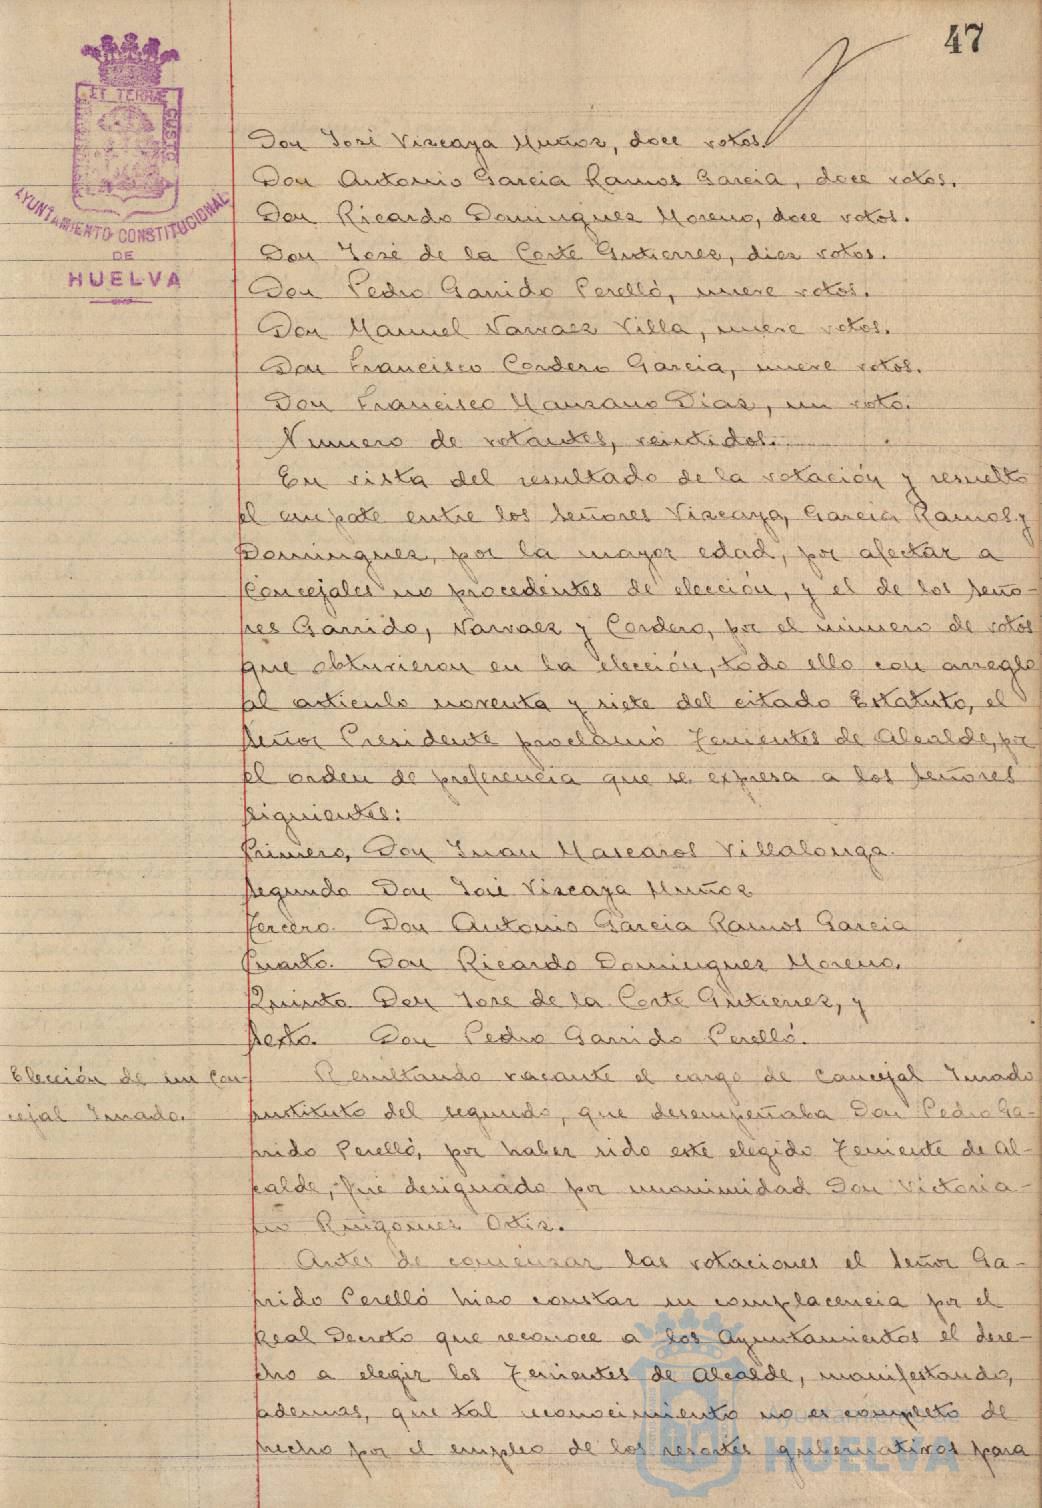 47
ET TERRÆ CUSTO
AYUNTAMIENTO CONSTITUCIONAL
DE
HUELVA
Don José Viscaya Muñoz, doce votos.
Don Antonio Garcia Ramos Garcia, doce votos.
Don Ricardo Dominguez Moreno, doce votos.
Don José de la Corte Gutierrez, diez votos.
Don Pedro Garrido Perelló, nueve votos.
Don Manuel Narvaez Villa, nueve votos.
Don Francisco Cordero Garcia, nueve votos.
Don Francisco Manzano Diaz, un voto.
Numero de votantes, veintidos.
En vista del resultado de la votación y resuelto
el empate entre los Señores Viscaya, Garcia Ramos y
Dominguez, por la mayor edad, por afectar a
Concejales no procedentes de elección, y el de los Seño-
res Garrido, Narvaez y Cordero, por el número de votos
que obtuvieron en la elección, todo ello con arreglo
al articulo noventa y siete del citado Estatuto, el
Señor Presidente proclamó Tenientes de Alcalde, por
el orden de preferencia que se expresa a los Señores
siguientes:
Primero, Don Juan Mascarós Villalonga.
Segundo Don José Viscaya Muñoz
Tercero. Don Antonio Garcia Ramos Garcia
Cuarto. Don Ricardo Dominguez Moreno.
Quinto Don Jose de la Corte Gutierrez, y
Sexto. Don Pedro Garrido Perelló.
Elección de un Con-
cejal Jurado.
Resultando vacante el cargo de Concejal Jurado
sustituto del segundo, que desempeñaba Don Pedro Ga-
rrido Perelló, por haber sido este elegido Teniente de Al-
calde, fué designado por unanimidad Don Victoria-
no Ruigomez Ortiz.
Antes de comenzar las votaciones el Señor Ga-
rrido Perelló hizo constar su complacencia por el
Real Decreto que reconoce a los Ayuntamientos el dere-
cho a elegir los Tenientes de Alcalde, manifestando,
ademas, que tal reconocimiento no es completo de
hecho por el empleo de los resortes gubernativos para
Ayuntamiento de
HUELVA